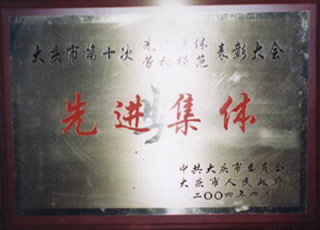 大庆市第十次先进集体劳动模范表彰大会
先进集体
中共大庆市委员会
大庆市人民政府
二〇〇四年四月